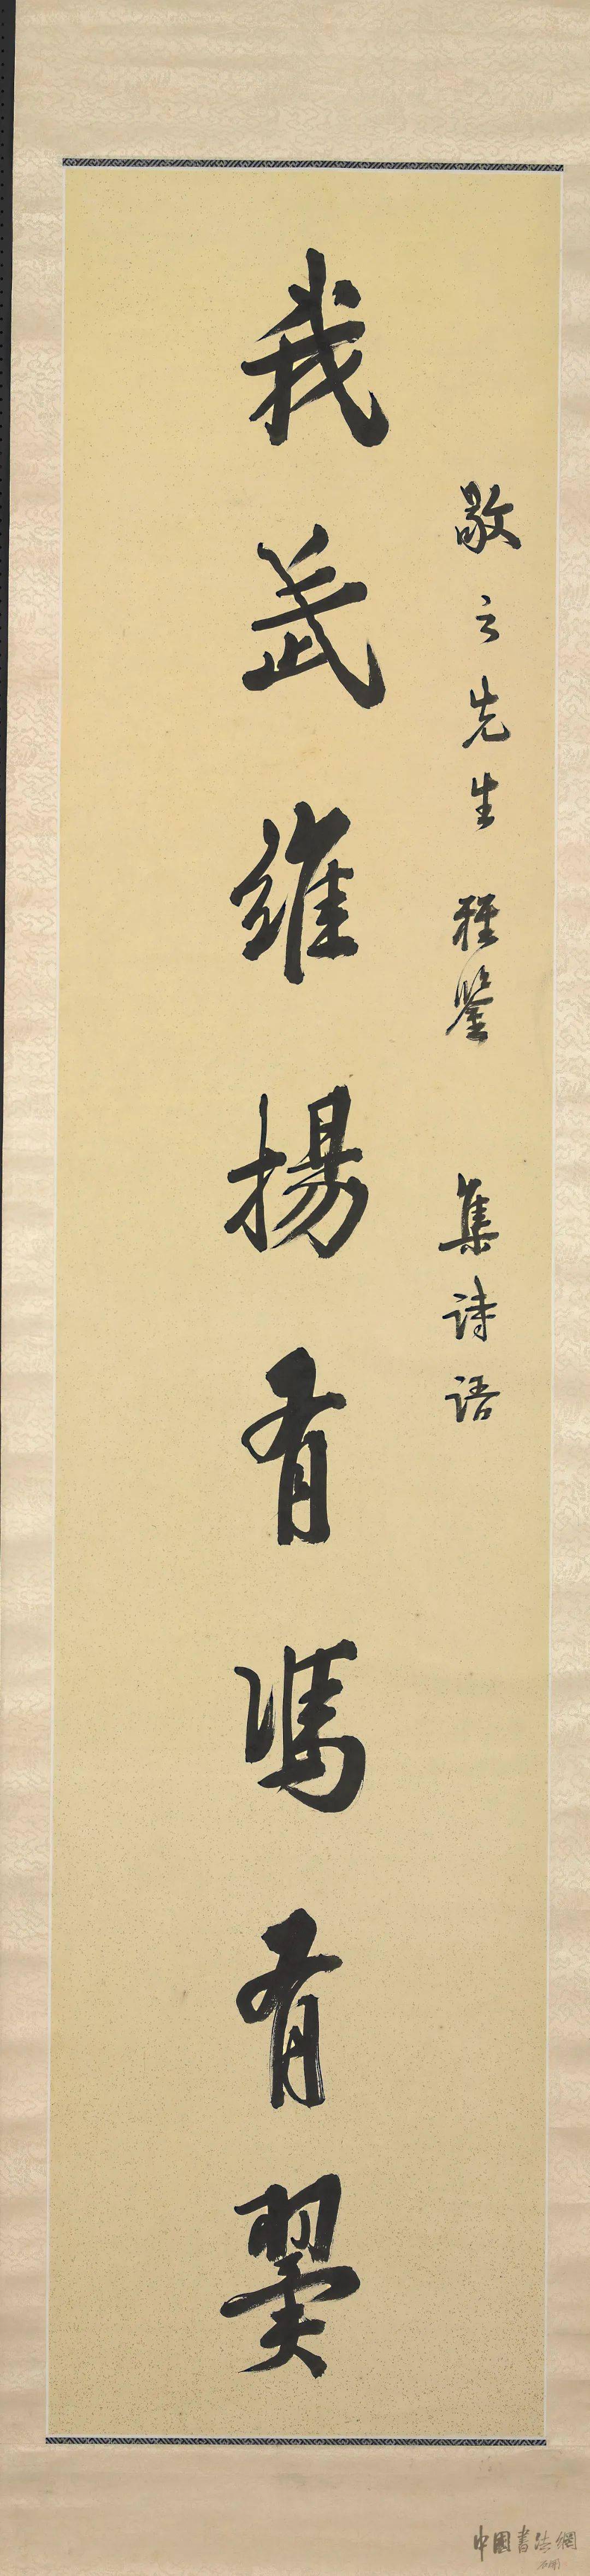 敬之先生 雅鑒 集詩語
我武維揚有馮有翼
中國書法網